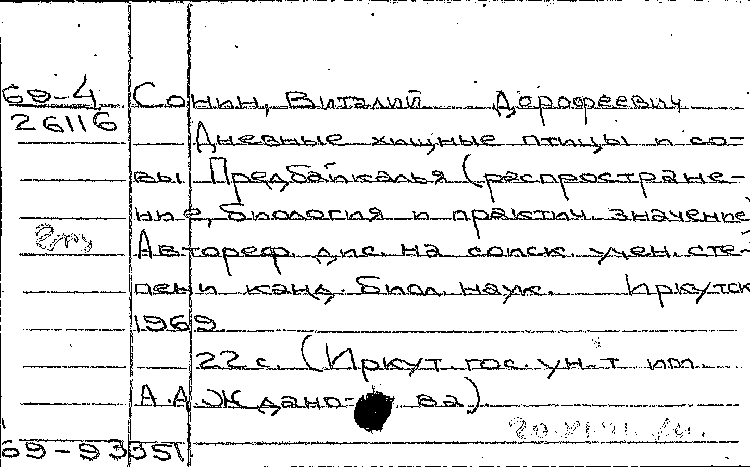 69-4 Сонин, Виталий Дорофеевич
26116
Дневные хищные птицы и со-
вы Предбайкалья (распростране-
ние, биология и практич. значение)
Автореф. дис. на соиск. учен. сте-
пени канд. биол. наук. Иркутск
1969.
22 с. (Иркут. гос. ун-т им.
А.А. Ждано- ва).
69-93351